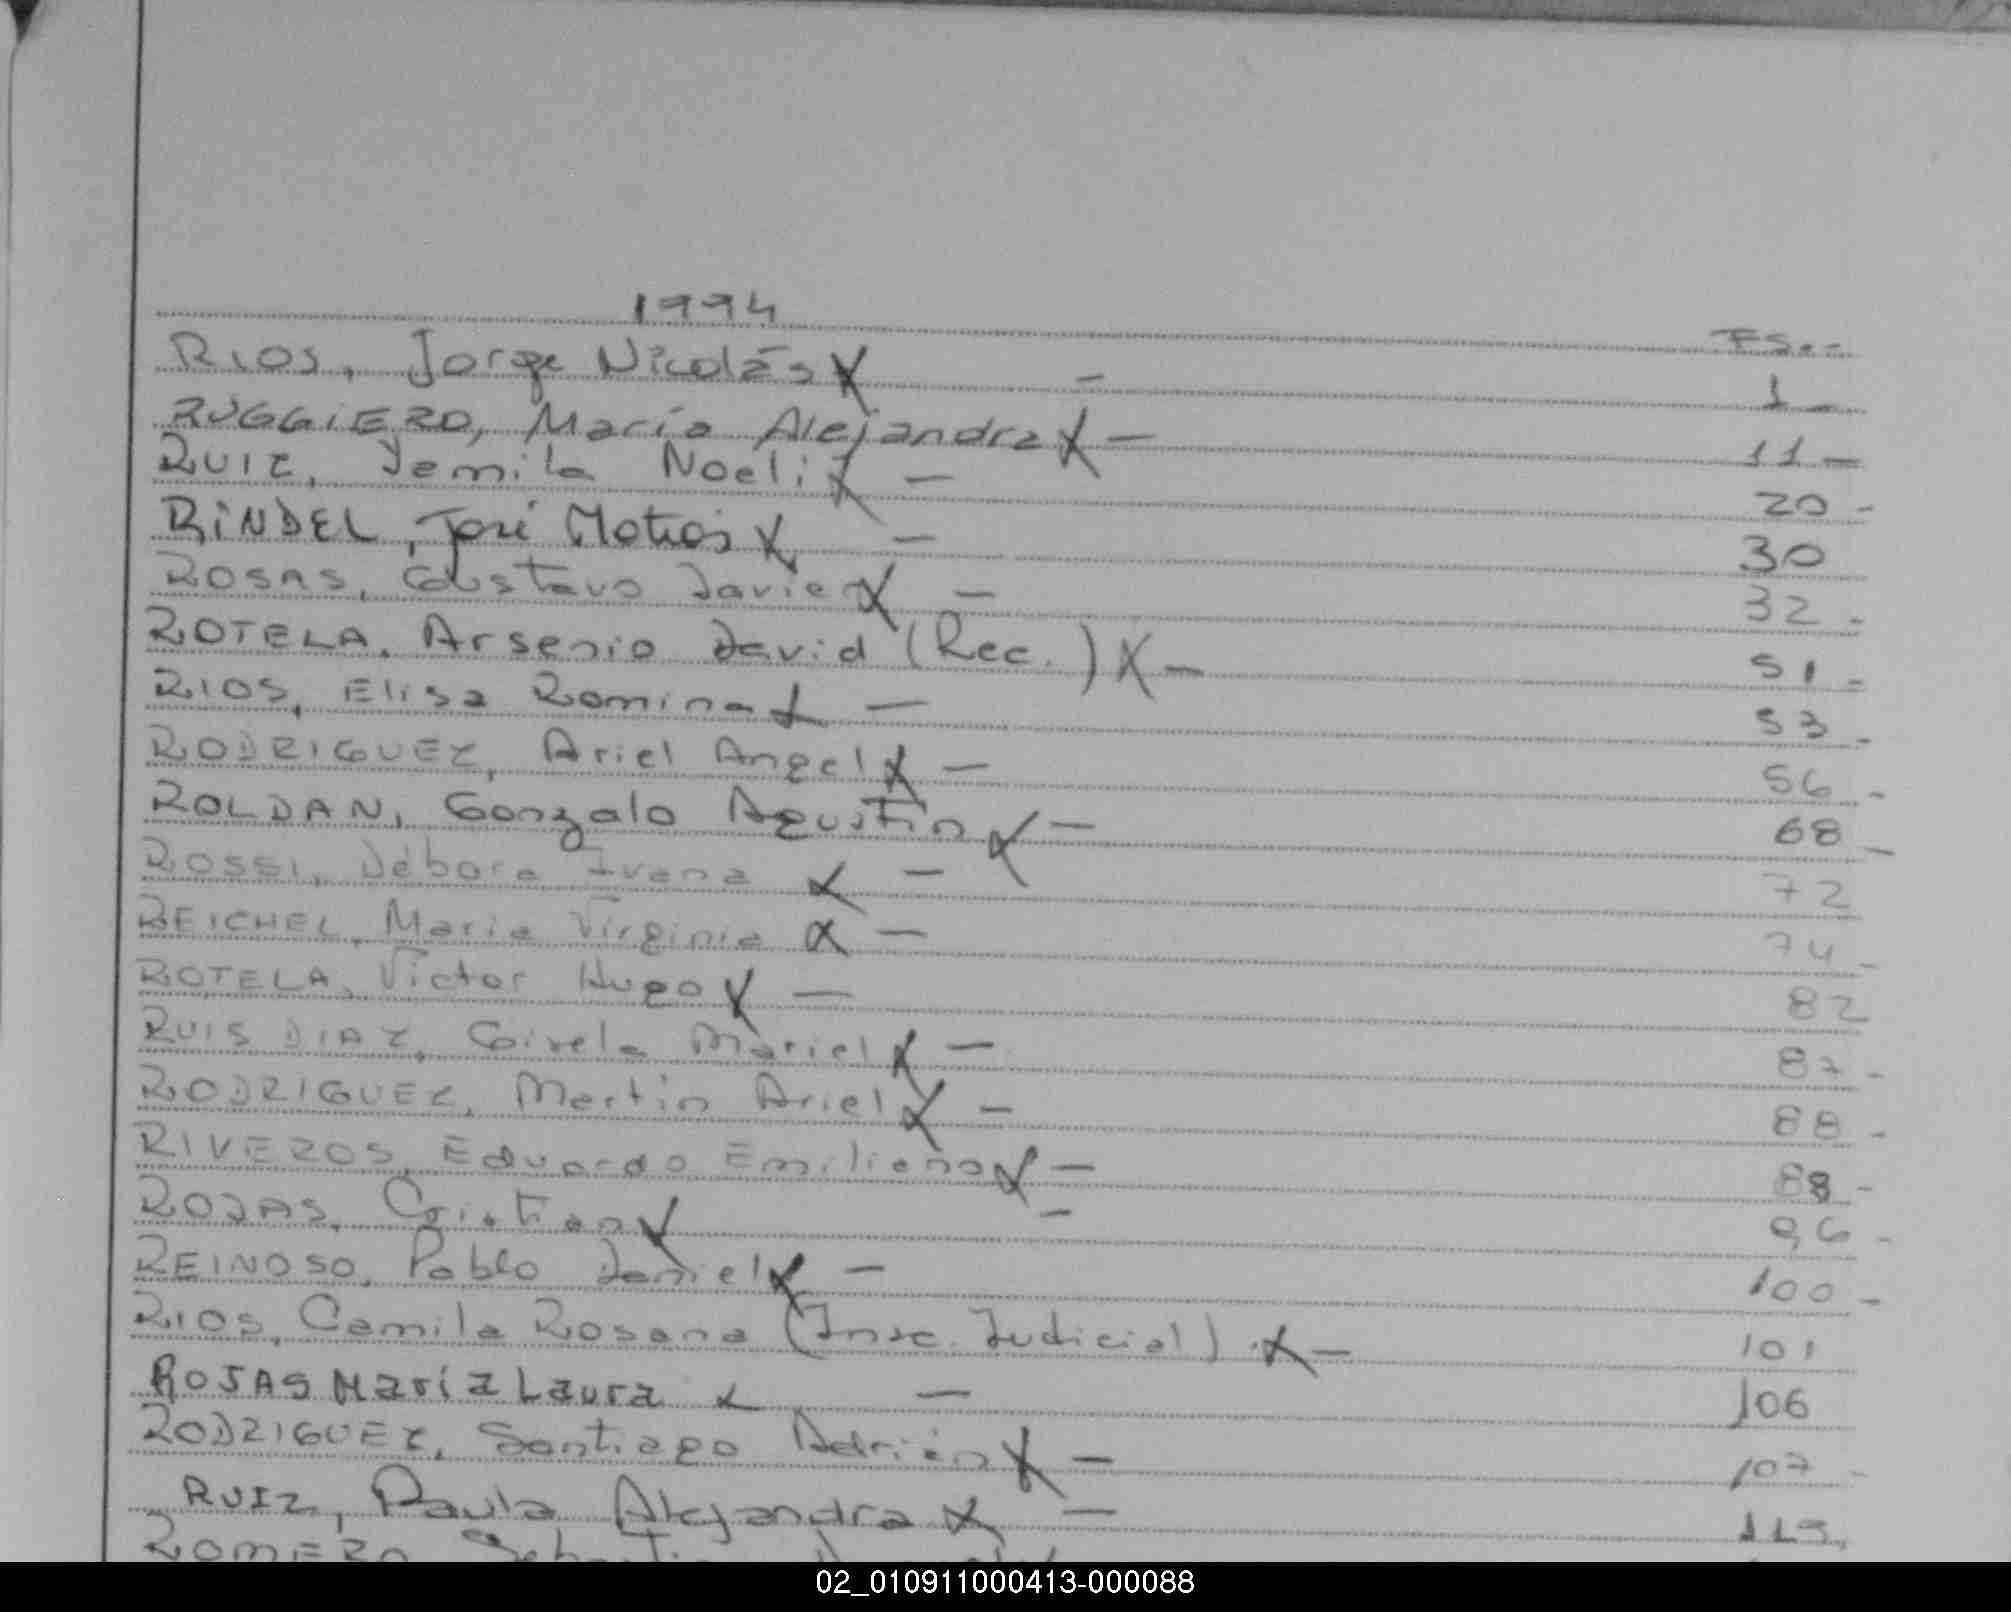 1994
FS.-
RIOS, Jorge Nicolás X - 1 -
RUGGIERO, María Alejandra X - 11 -
RUIZ, Jemila Noeli X - 20 -
RINDEL, José Matías X - 30
ROSAS, Gustavo Javier X - 32 -
ROTELA, Arsenio David (Rec.) X - 51 -
RIOS, Elisa Romina X - 53 -
RODRIGUEZ, Ariel Angel X - 56 -
ROLDAN, Gonzalo Agustín X - 68 -
ROSSI, Débora Ivana X - 72
REICHEL, María Virginia X - 74 -
ROTELA, Victor Hugo X - 82
RUIS DIAZ, Gisela Mariel X - 87 -
RODRIGUEZ, Martín Ariel X - 88 -
RIVEROS, Eduardo Emiliano X - 89 -
ROJAS, Cristian X - 96 -
REINOSO, Pablo Daniel X - 100 -
RIOS, Camila Rosana (Insc. Judicial) X - 101
ROJAS María Laura X - 106
RODRIGUEZ, Santiago Adrián X - 107 -
RUIZ, Paula Alejandra X -
ROMERO, Sebastián
02_010911000413-000088